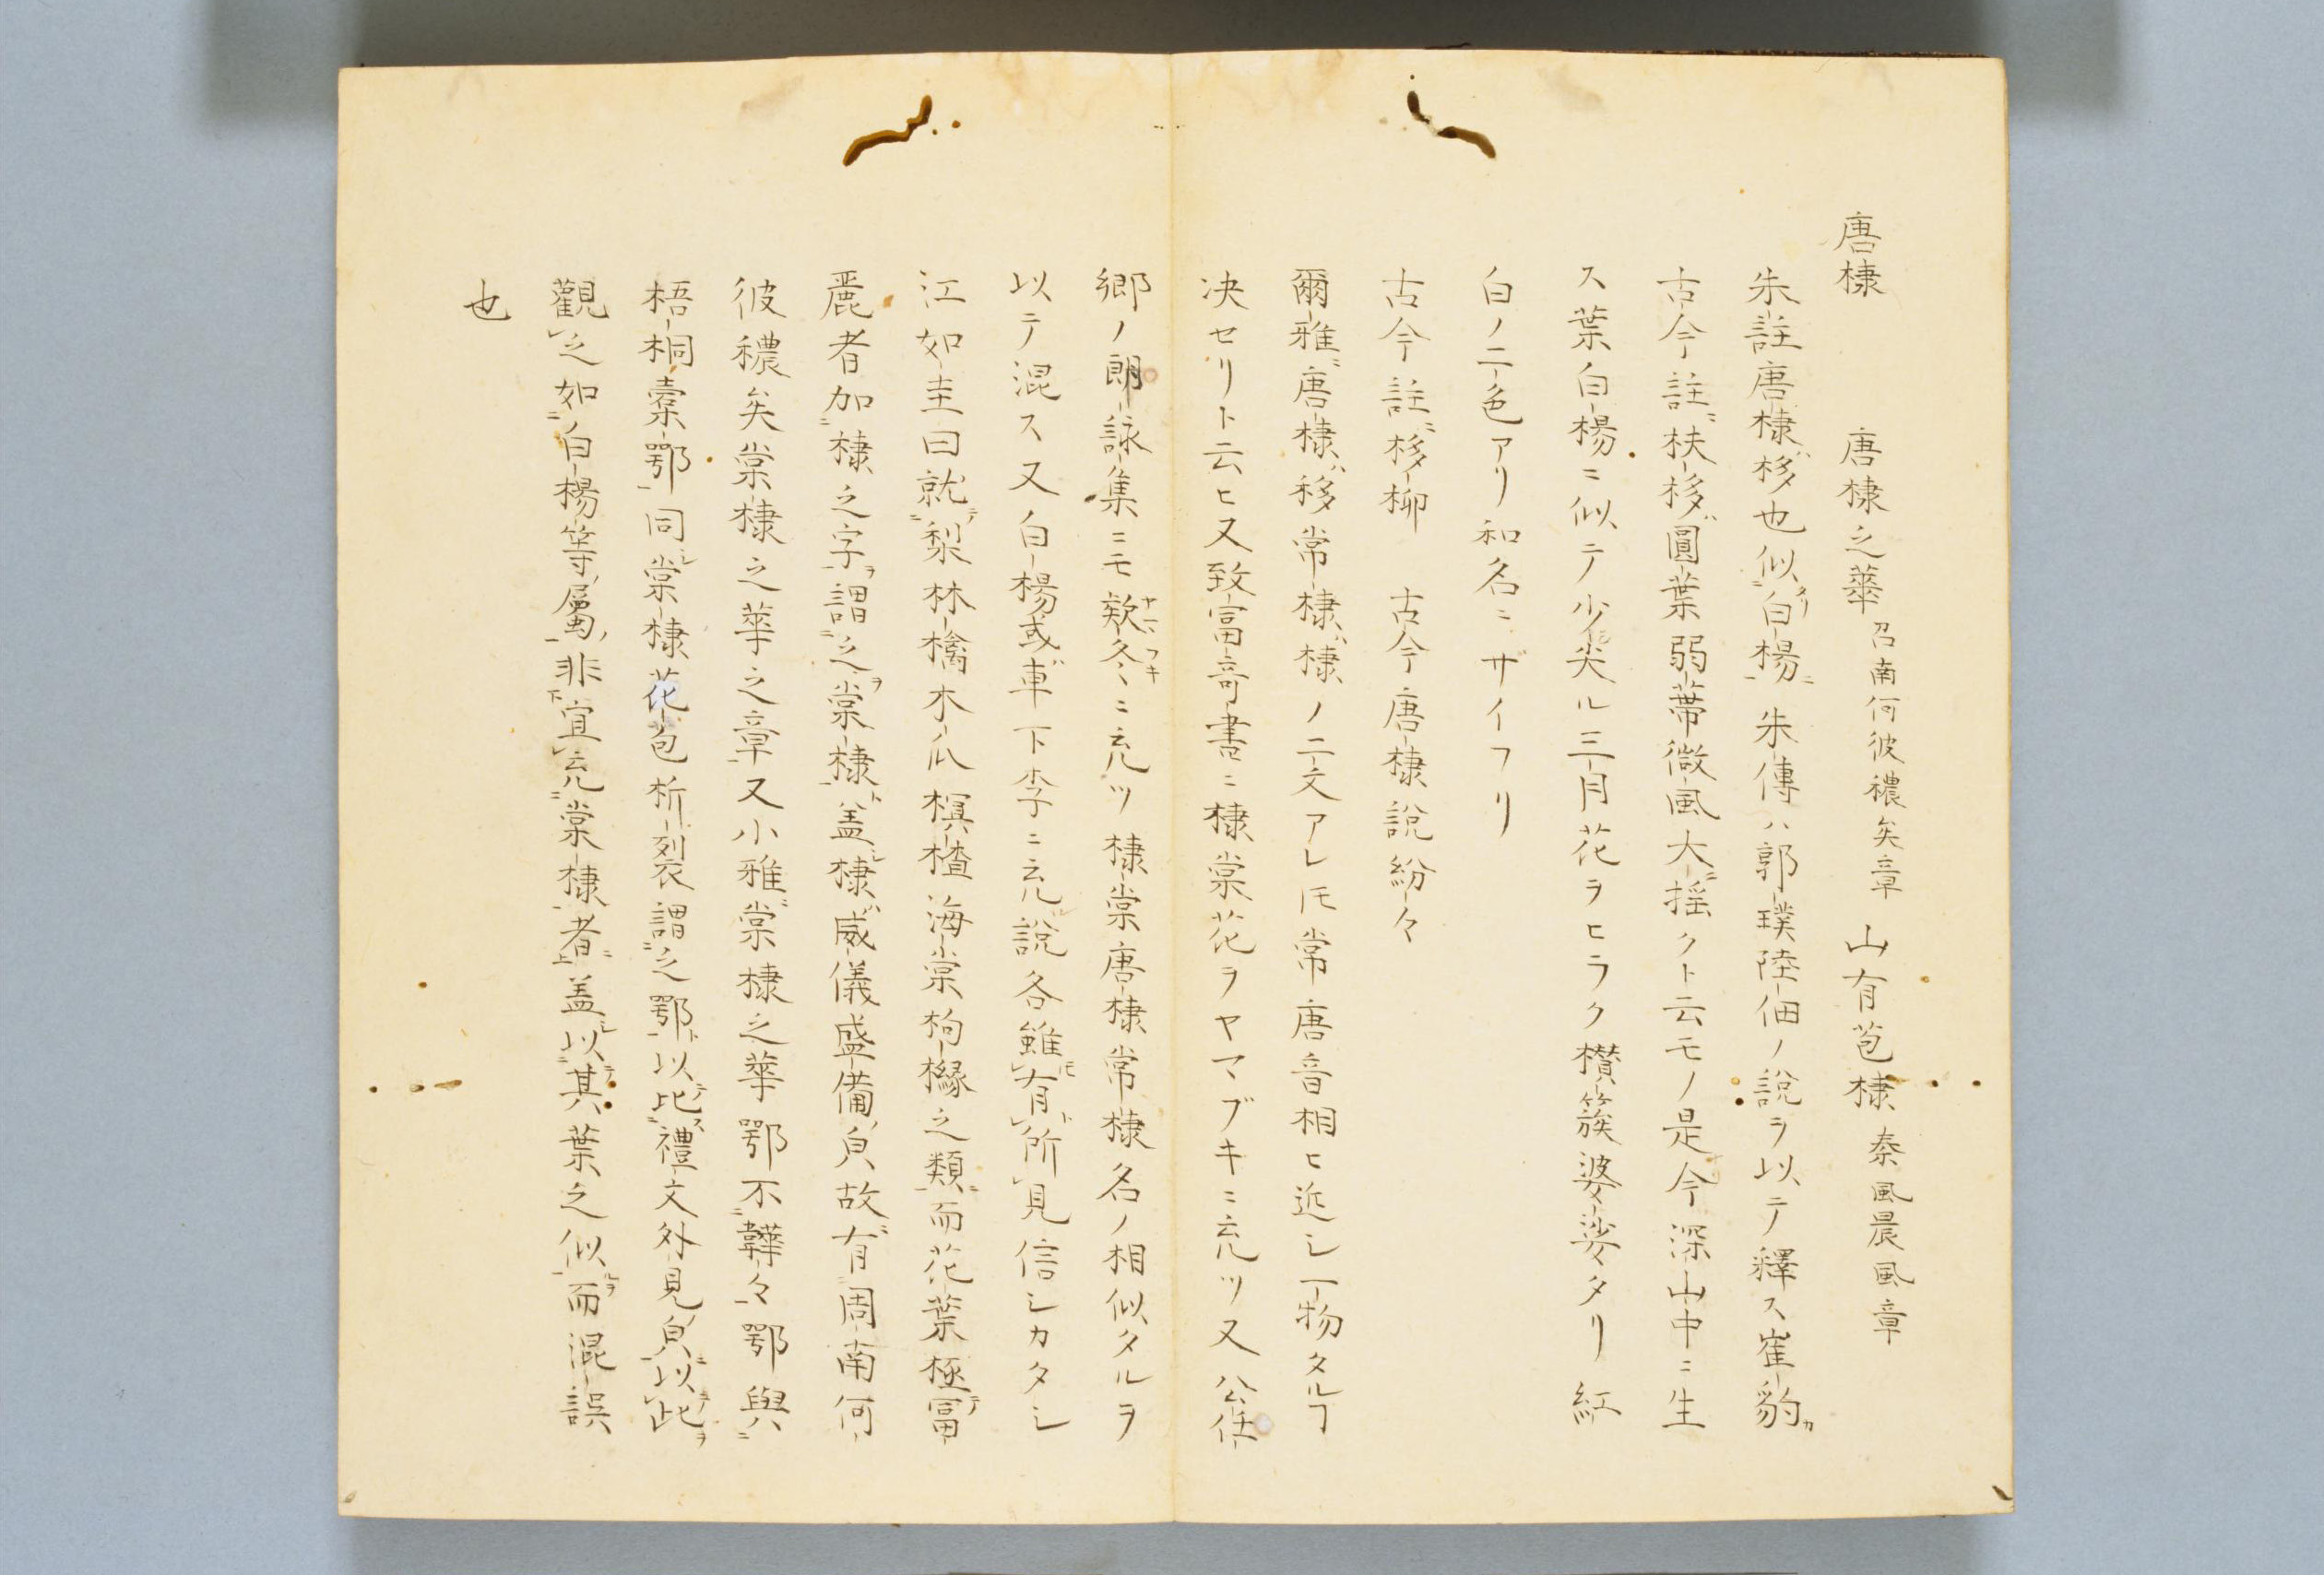 唐棣　唐棣之華 召南何彼穠矣章 山有苞棣 秦風晨風章
朱註唐棣ハ栘也似タリ白楊ニ朱傳ハ郭璞陸佃ノ說ヲ以テ釋ス崔豹カ
古今註ニ扶栘ハ圓葉弱蔕微風大ニ揺クト云モノ是今深山中ニ生
ス葉白楊ニ似テ少尖ル三月花ヲヒラク櫕簇婆娑タリ紅
白ノ二色アリ和名ニザイフリ
古今註ニ栘柳　古今唐棣說紛々
爾雅ニ唐棣ハ移常棣ハ棣ノ二文アレ𪜈常唐音相ヒ近シ一物タルヿ
决セリト云ヒ又致富奇書ニ棣棠花ヲヤマブキニ充ツ又公任
郷ノ朗詠集ニモ欵冬ヤマフキニ充ツ棣棠唐棣常棣名ノ相似タルヲ
以テ混ス又白楊或ハ車下李ニ充ツ說各雖𪜈有ト所見信シカタシ
江如圭曰就テ梨林檎木瓜榠樝海棠枸櫞之類ニ而花葉極テ冨
麗者加棣之字ヲ謂之ヲ棠棣ト盖シ棣ハ威儀盛備ノ皃故ニ有周南何
彼穠矣棠棣之華之章又小雅ニ棠棣之華鄂不韡々鄂與
梧桐櫜鄂同シ棠棣花苞析裂謂之鄂ト以テ比ス禮文外見ノ皃ニ以テ此ヲ
觀之如白楊等ノ屬ノ非宜充棠棣者ニ盖シ以テ其葉之似ルヲ而混誤
也